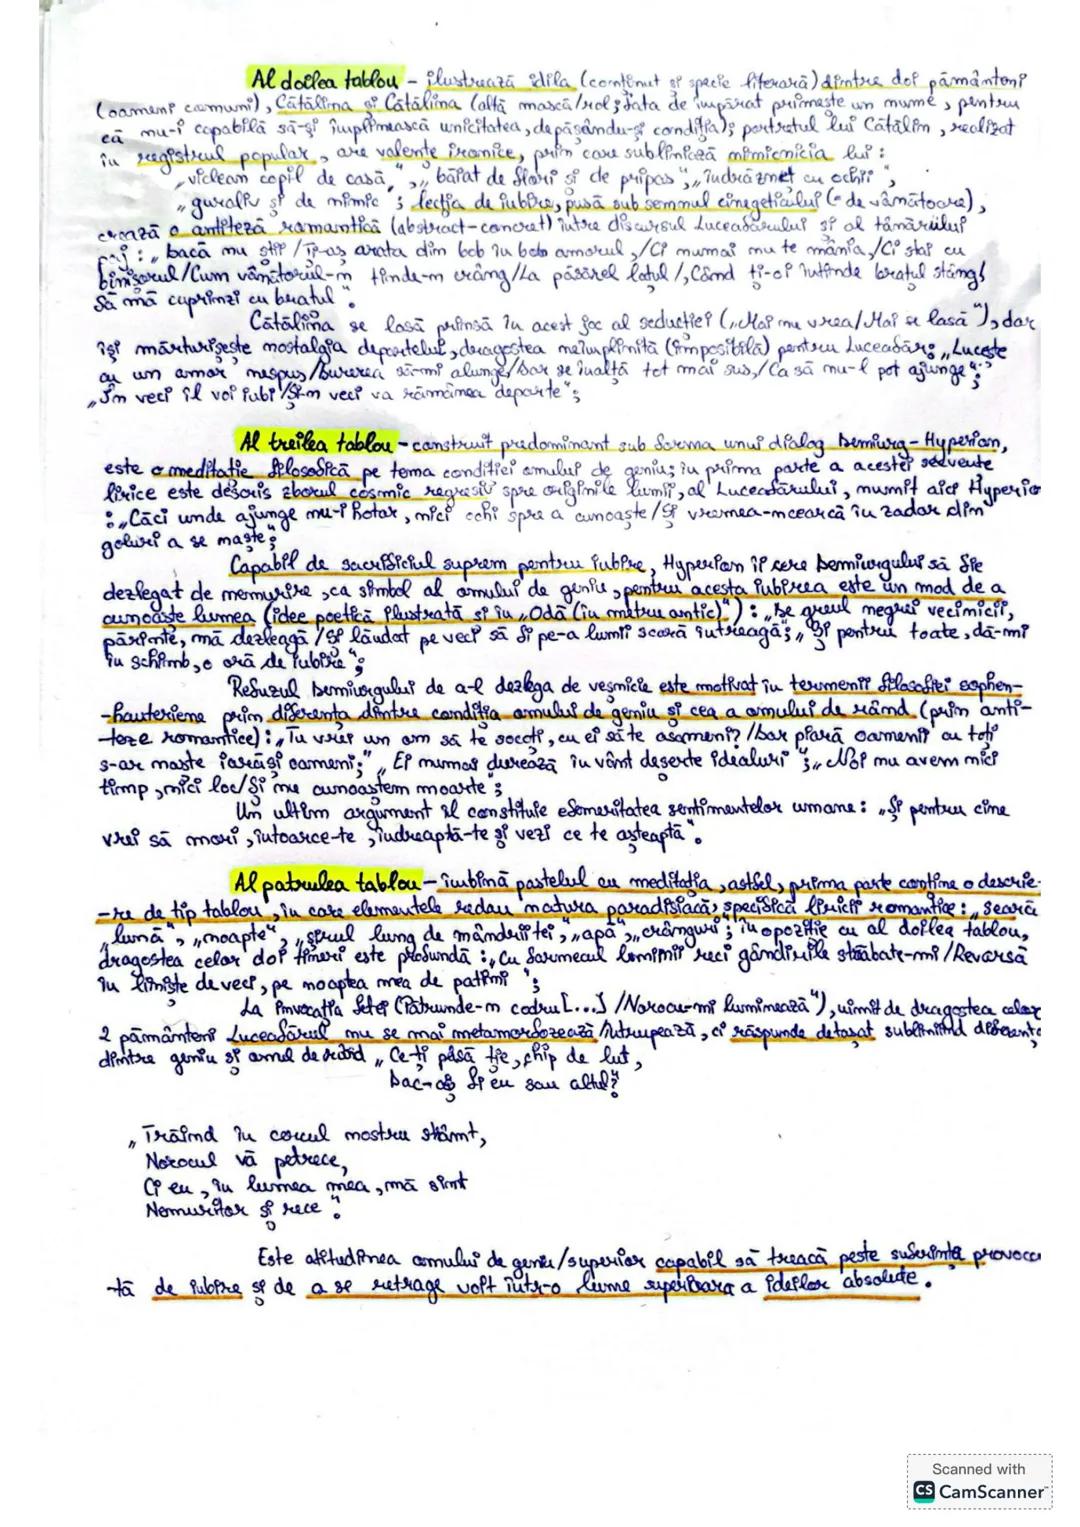 Al doilea tablou - ilustrează idila (conținut și specie literară) dintre doi pământeni
(oameni comuni), Cătălina și Cătălina (altă mască/rol; fata de împărat primește un nume, pentru
că nu-i capabilă să-și împlinească unicitatea, depășându-și condiția); portretul lui Cătălin, realizat
în registrul popular, are valențe ironice, prin care subliniază nimicnicia lui:
„viclean copil de casă", „băiat de flori și de pripas", „îndrăzneț cu ochii",
„guraliv și de nimic"; lecția de iubire, pusă sub semnul cinegeticului (= de vânătoare),
crează o antiteză romantică (abstract-concret) între discursul Luceafărului și al tânărului
paj: „Dacă nu știi / Ți-aș arăta din bob în bob amorul,/Ci numai nu te mânia,/Ci stai cu
binișorul/Cum vânătorul-n tinde-n crâng/La păsărel lațul/,Când ți-oi întinde brațul stâng/
Să mă cuprinzi cu brațul".
Cătălina se lasă prinsă în acest joc al seducției („Mai nu vrea/Mai se lasă"), dar
își mărturisește nostalgia departelui, dragostea neîmplinită (imposibilă) pentru Luceafăr: „Lucește
cu un amor nespus/Durerea să-mi alunge/Dar se înalță tot mai sus,/Ca să nu-l pot ajunge";
„În veci îl voi iubi/Și-n veci va rămânea departe";
Al treilea tablou - construit predominant sub forma unui dialog Demiurg-Hyperion,
este o meditație filosofică pe tema condiției omului de geniu; în prima parte a acestei secvențe
lirice este descris zborul cosmic regresiv spre originile lumii, al Luceafărului, numit aici Hyperio
: „Căci unde ajunge nu-i hotar, nici ochi spre a cunoaște/Și vremea-ncearcă în zadar din
goluri a se naște;
Capabil de sacrificiul suprem pentru iubire, Hyperion îi cere Demiurgului să fie
dezlegat de nemurire, ca simbol al omului de geniu, pentru acesta iubirea este un mod de a
cunoaște lumea (idee poetică ilustrată și în „Odă (în metru antic)"): „De greul negrei vecinicii,
părinte, mă dezleagă/Și lăudat pe veci să fi pe-a lumii scară întreagă; „Și pentru toate, dă-mi
în schimb, o oră de iubire";
Refuzul Demiurgului de a-l dezlega de veșnicie este motivat în termenii filosofiei sophen-
-hauteriene prin diferența dintre condiția omului de geniu și cea a omului de rând (prin anti-
-teze romantice): „Tu vrei un om să te socoți, cu ei să te asameni? /Dar piară oamenii cu toți
s-ar naște iarăși oameni;" „Ei numai durează în vânt deșerte idealuri"; „Noi nu avem nici
timp, nici loc/Și nu cunoaștem moarte;
Un ultim argument îl constituie efemeritatea sentimentelor umane: „Și pentru cine
vrei să mori, întoarce-te, îndreaptă-te și vezi ce te așteaptă".
Al patrulea tablou - îmbină pastelul cu meditația, astfel, prima parte conține o descrie-
-re de tip tablou, în care elementele redau natura paradisiacă, specifică liricii romantice: „seară
„lună", „noapte", „șirul lung de mândri tei", „apă", „crânguri"; în opoziție cu al doilea tablou,
dragostea celor doi tineri este profundă: „Cu farmecul luminii reci gândirile străbate-mi/Revarsă
în liniște de veci, pe noaptea mea de patimi";
La invocația fetei (Pătrunde-n codru[...] /Norocu-mi luminează"), uimit de dragostea celor
2 pământeni Luceafărul nu se mai metamorfozează/întrupează, ci răspunde detașat subliniind diferența
dintre geniu și omul de rând „Ce-ți pasă ție, chip de lut,
Dac-oi fi eu sau altul?"
„Trăind în cercul nostru strâmt,
Norocul vă petrece,
Ci eu, în lumea mea, mă simt
Nemuritor și rece".
Este atitudinea omului de geniu/superior capabil să treacă peste suferința provoca
-tă de iubire și de a se retrage voit într-o lume superioară a ideilor absolute.
Scanned with
CS CamScanner